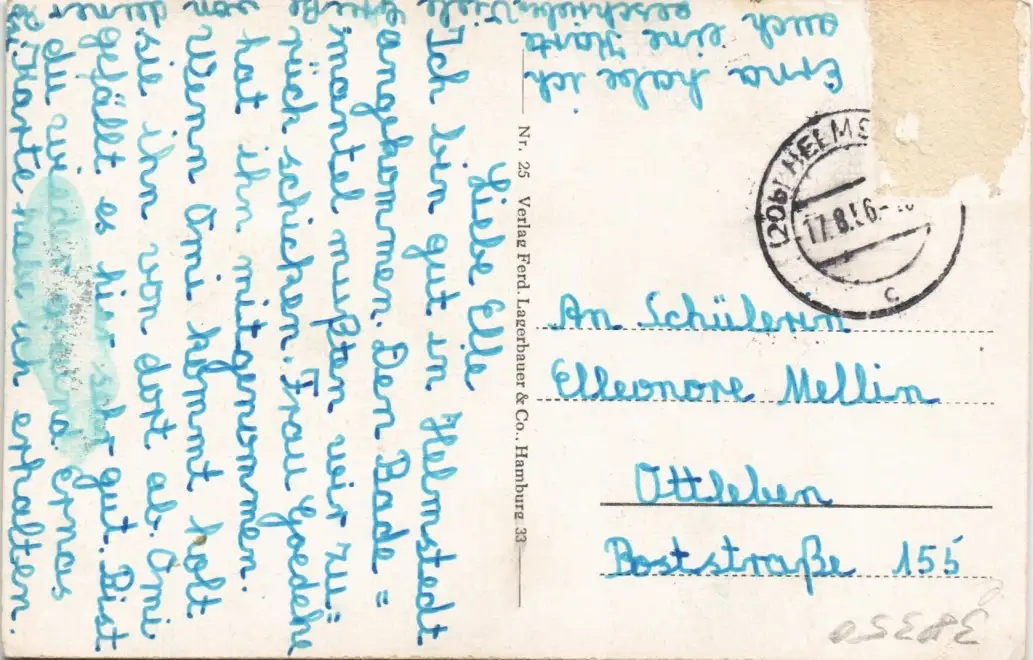 Liebe Elle
Ich bin gut in Helmstedt
angekommen. Den Bade =
mantel mußten wir zu =
rück schicken. Frau Goedeke
hat ihn mitgenommen.
Wenn Omi kommt holt
sie ihn von dort ab. Omi
gefällt es hier sehr gut. Bist
du wieder Ernas
Karte habe ich erhalten.
Erna habe ich
auch eine Karte
geschrieben. Viele
Grüße von deiner
Nr. 25 Verlag Ferd. Lagerbauer & Co., Hamburg 33
(20b) HELMS
17.8.56
c
An Schülerin
Elleonore Mellin
Ottleben
Poststraße 155
38350